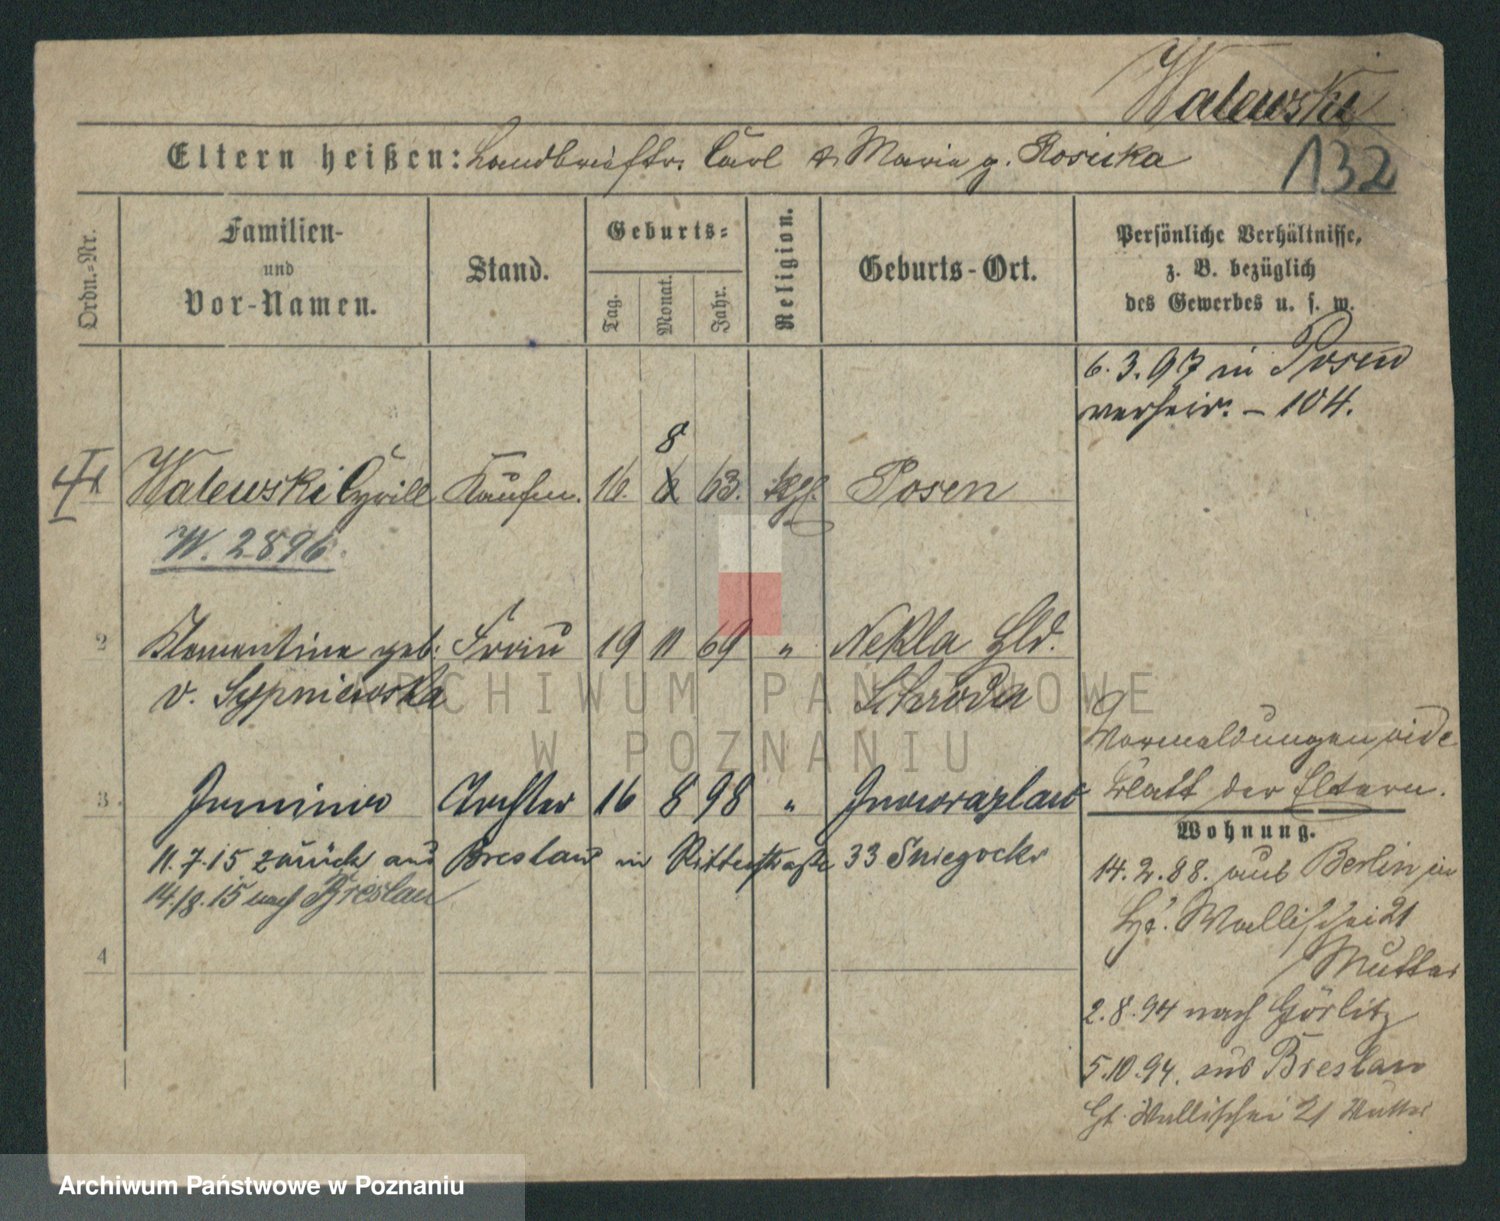 Walewski
132
Eltern heißen: Landbrieftr. Carl & Marie g. Rosicka
Ordn.-Nr.
Familien-
und
Vor-Namen.
Stand.
Geburts-
Tag.
Monat.
Jahr.
Religion.
Geburts-Ort.
Persönliche Verhältnisse,
z. B. bezüglich
des Gewerbes u. s. w.
6.3.97 in Posen
verheir. – 104.
8
Walewski Cyrill Kaufm. 16. 6 63. kath. Posen
W. 2896.
2 Klementine geb. Frau 19 11 69 " Nekla Hld.
v. Sypniewska Schroda
ARCHIWUM PAŃSTWOWE
W POZNANIU
Vormeldungen vide
Blatt der Eltern.
3 Tochter 16 8 98 " Inowrazlaw
Wohnung.
11.7.15 zurück aus Breslau in Ritterstraße 33 Sniegocki
14/8.15 nach Breslau
4
14.2.88. aus Berlin in
Wallischei 21
Mutter
2.8.94 nach Görlitz
5.10.94. aus Breslau
Wallischei 21 Mutter
Archiwum Państwowe w Poznaniu